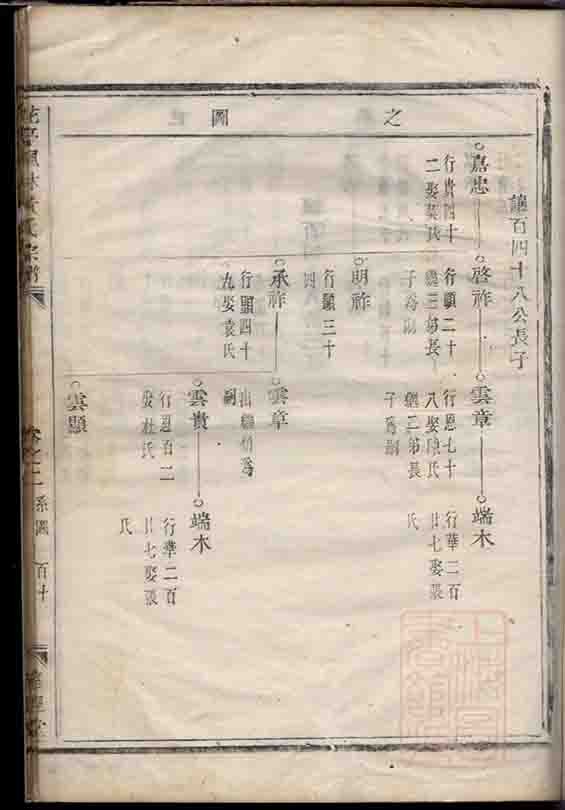 之
圖
讓百四十八公長子
嘉忠
行貴四十
二娶葉氏
啓祚
行顯二十
繼三弟長
子爲嗣
雲章
行恩七十
八娶陳氏
繼二弟長
子爲嗣
端木
行華二百
廿七娶張
氏
明祚
行顯三十
四
承祚
行顯四十
九娶袁氏
雲章
出繼伯爲
嗣
雲貴
行恩百二
娶杜氏
端木
行華二百
廿七娶張
氏
雲顯
氏宗譜
系圖
百十
堂
上海圖
書館藏